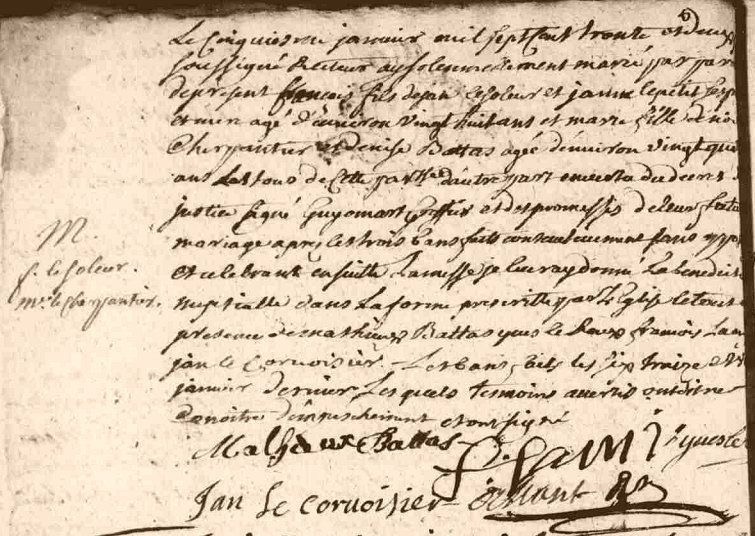 Le cinquiesme janvier mil sept cent trente et deux
soussigné Recteur ay solennellement marié par par
de present francois fils de jan le soleur et janne le petit
et mere agé d'environ vingt huit ans et marie fille de
Cherpantier et denise Battas agée d'environ vingt qu
ans Les tous de cette par d'autre part en vertu du decret
justice signé Guyomart Greffier et des promesses de leur futur
M. mariage apres les trois bans faits consecutivement sans opp
f. le soleur. et celebrant ensuitte La messe je leur ay donné La benedict
me le cherpantier. nuptialle dans La forme prescritte par L'Eglise le tout
presence de mathieu Battas yves le Roux francois La
jan le Corvoisier Les bans faits les six traize et
janvier dernier Lesquels temoins avertis ont
de notre d'empeschement et ont signé
Matheux Battas yves le
Jan Le corvoisier